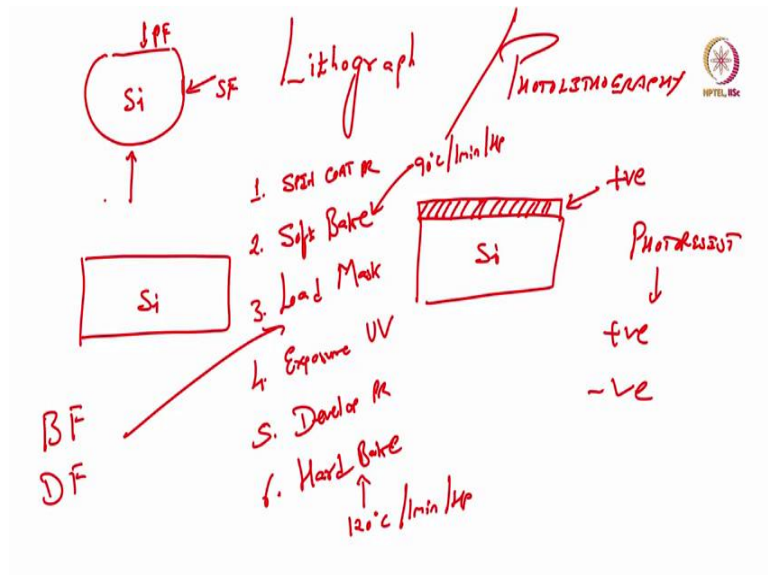 PF
Si
SF
Lithograph
PHOTOLITHOGRAPHY
NPTEL, IISc
1. SPIN COAT PR
90°C/1min/HP
2. Soft Bake
3. Load Mask
4. Exposure UV
5. Develop PR
6. Hard Bake
120°C/1min/HP
+ve
Si
Si
PHOTORESIST
+ve
-ve
BF
DF